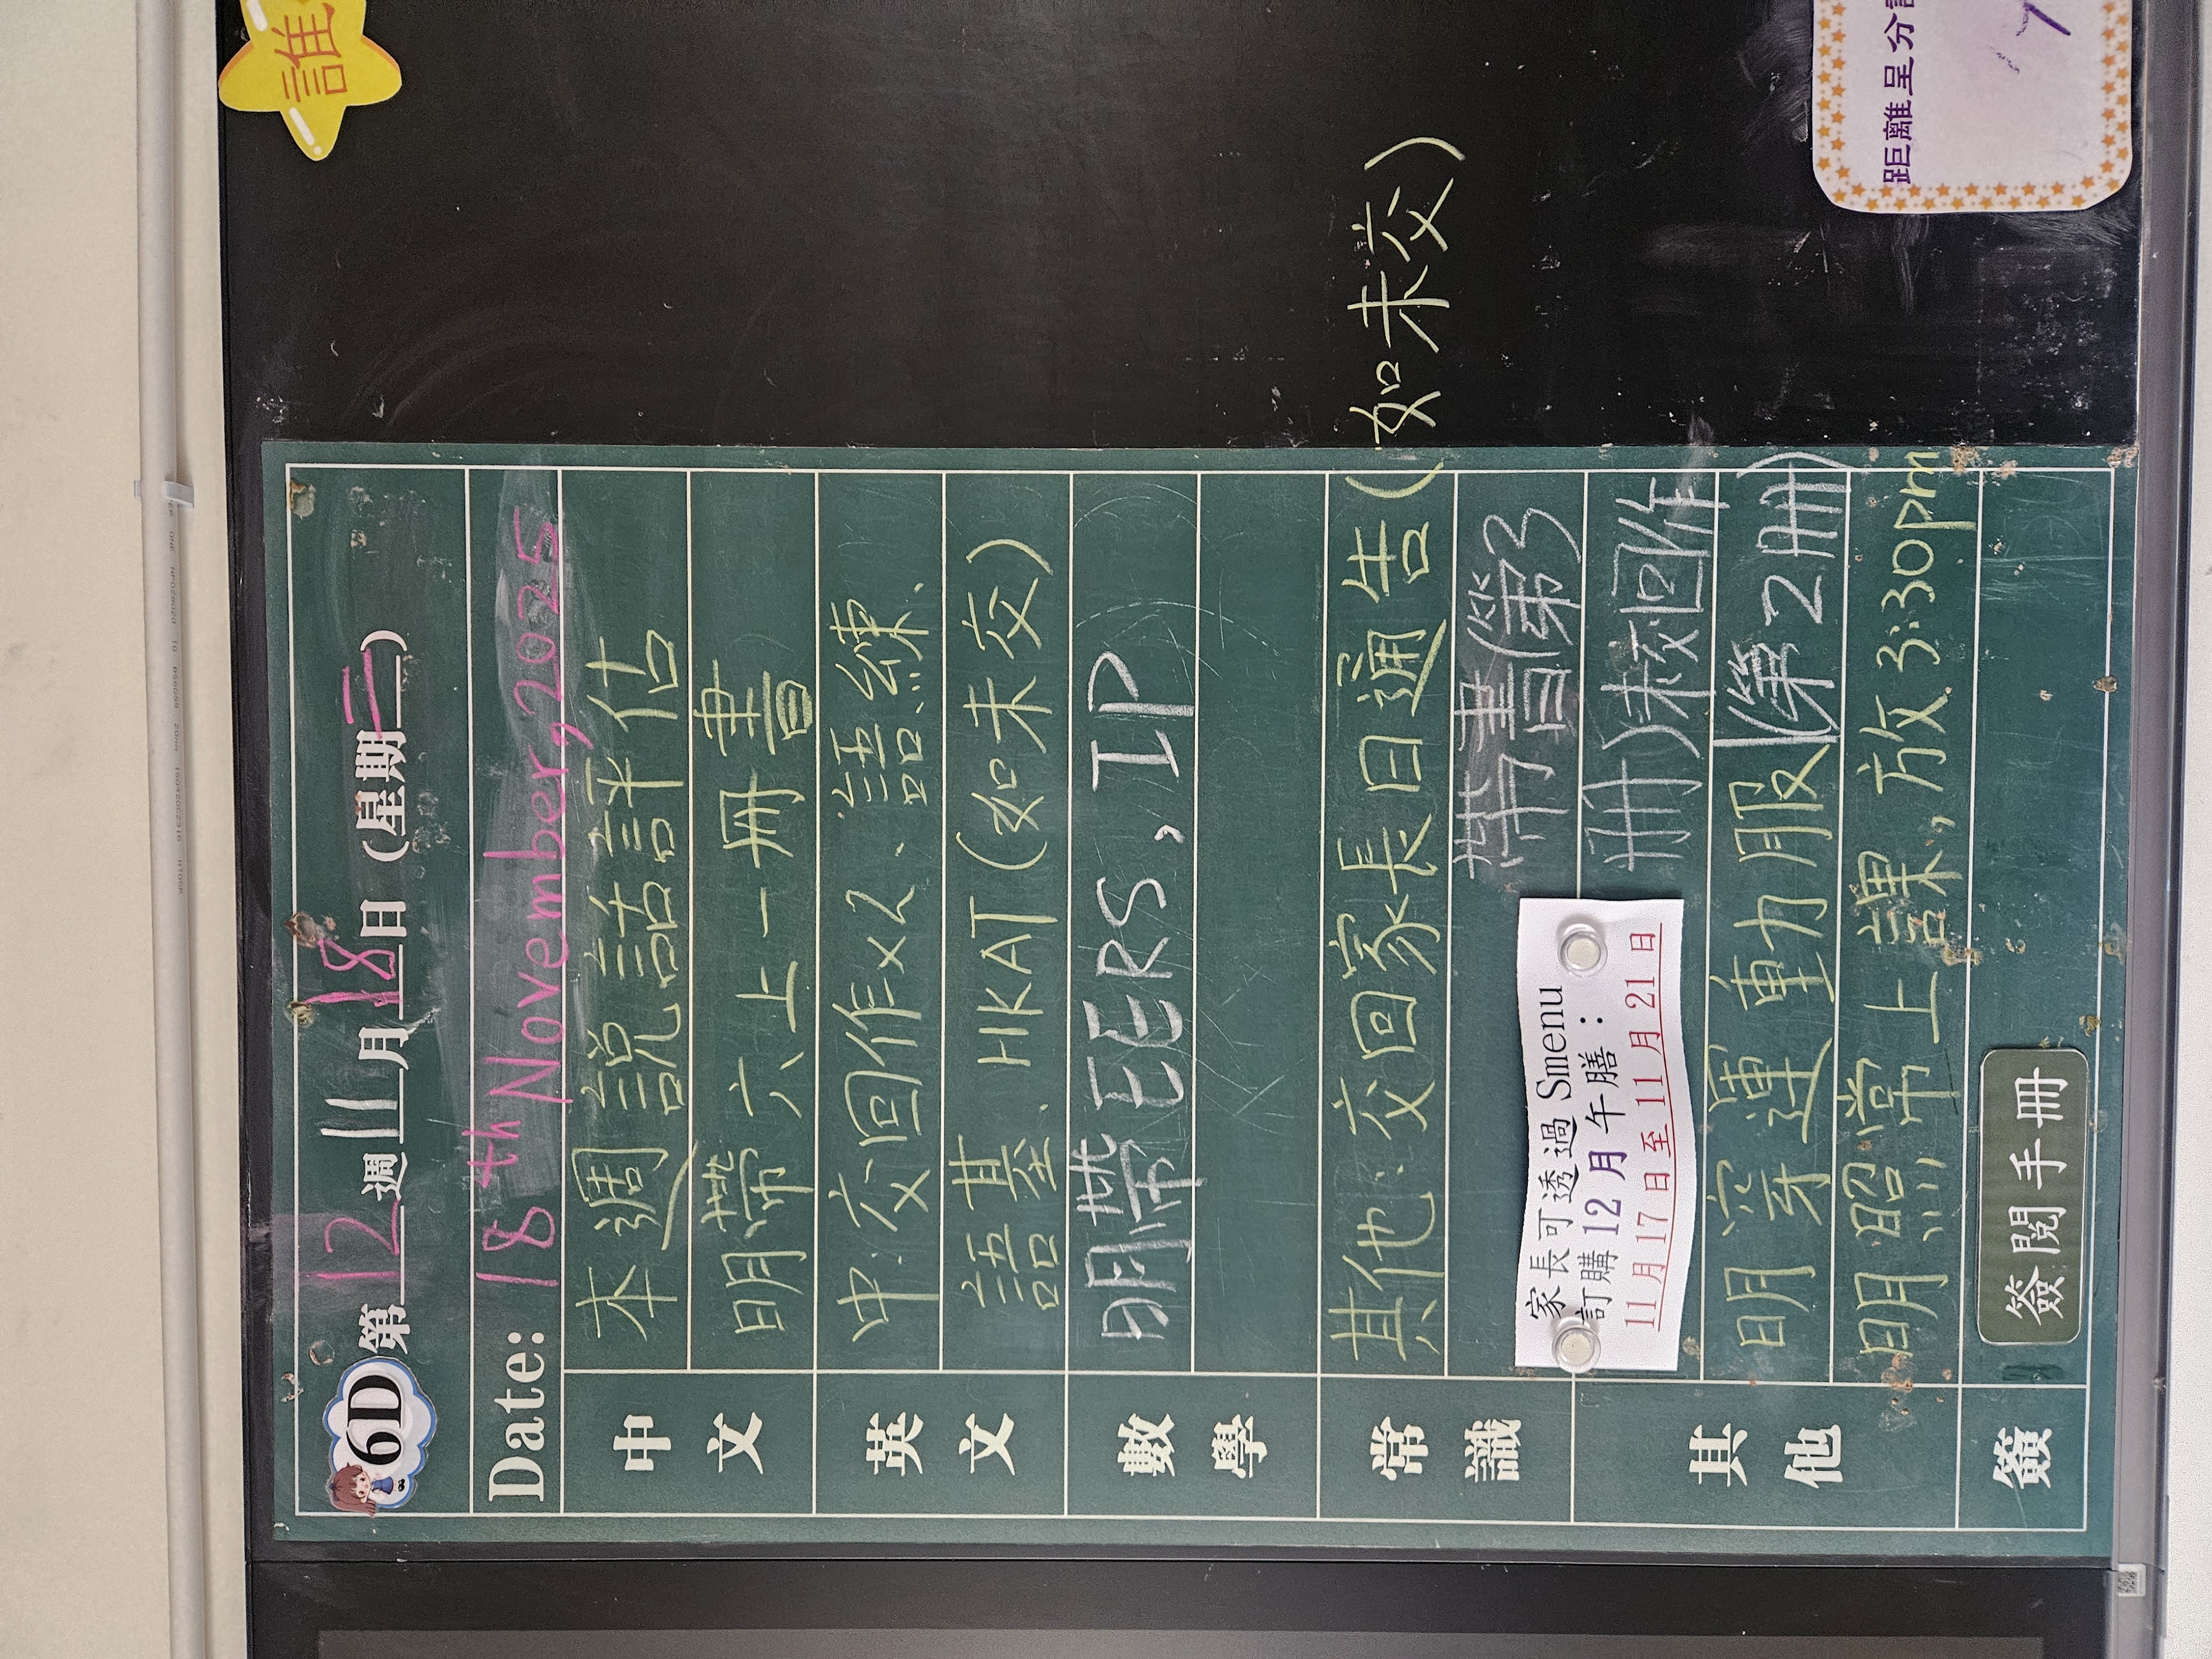 誰
6D 第12週 11月18日(星期二)
Date: 18th November, 2025
中文
本週說話評估
明帶六上一冊書
英文
中:交回作x2、語練、
語基、HKAT(如未交)
數學
明帶EERS, IP
常識
其他:交回家長日通告(如未交)
帶書(第3
冊)未交回作
(第2冊)
家長可透過 Smenu
訂購 12 月 午膳:
11 月 17 日至 11 月 21 日
其他
明穿運動服
明照常上課,放3:30pm
簽
簽閱手冊
距離呈分